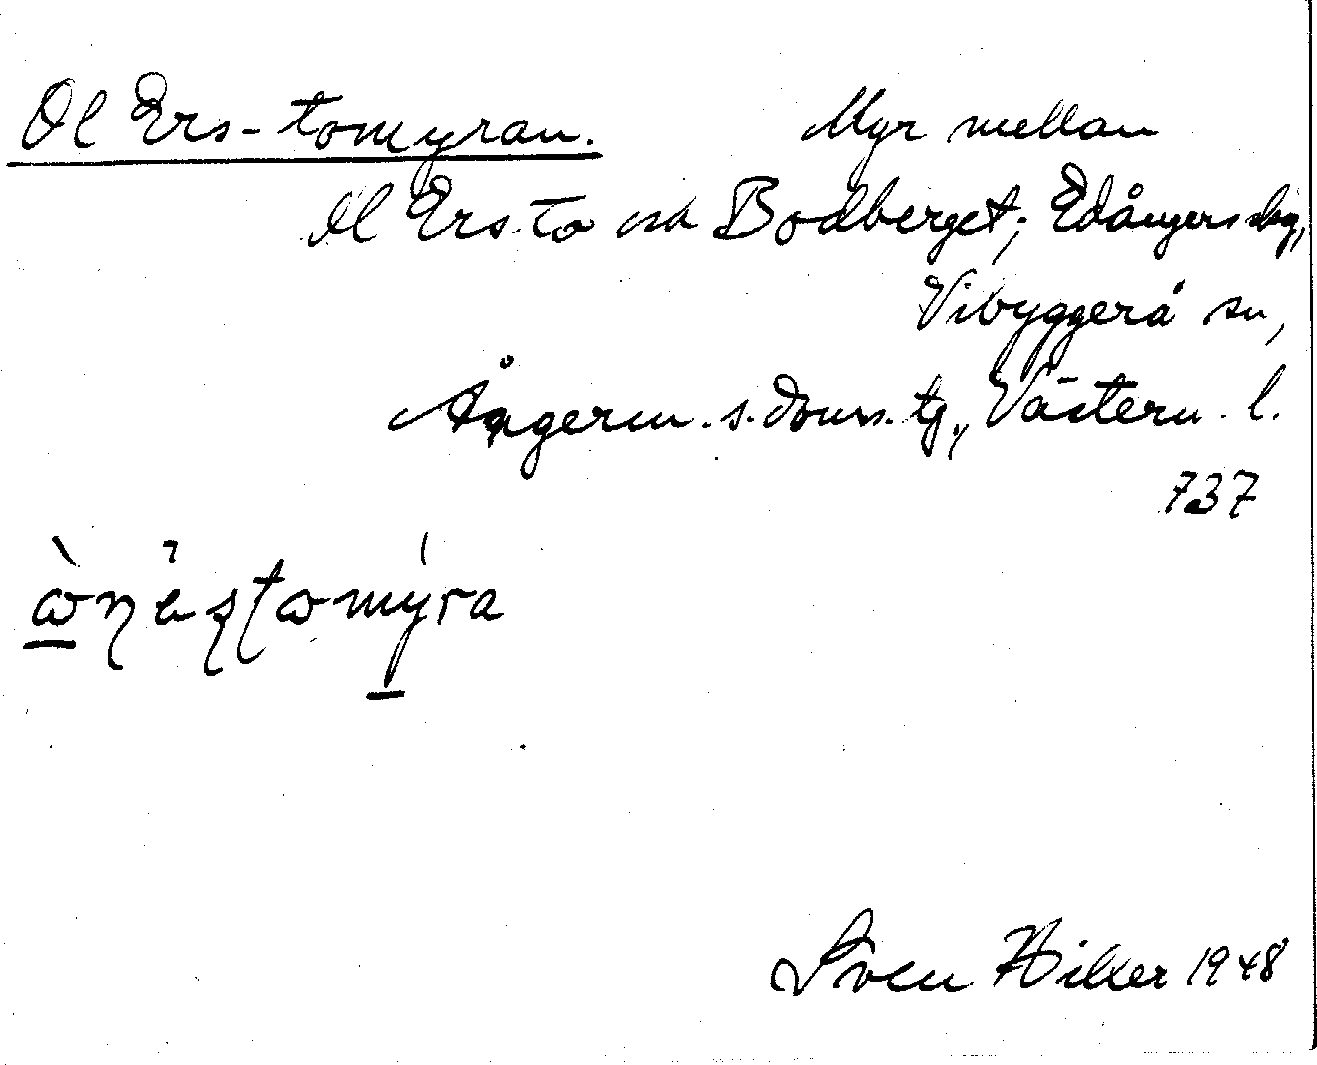 Ol Ers-tomyran. Myr mellan
Ol Ers to och Bodberget; Edångers skg,
Vibyggerå sn,
Ångerm. s. doms. tg., Västern. l.
737
Sven Hilker 1948